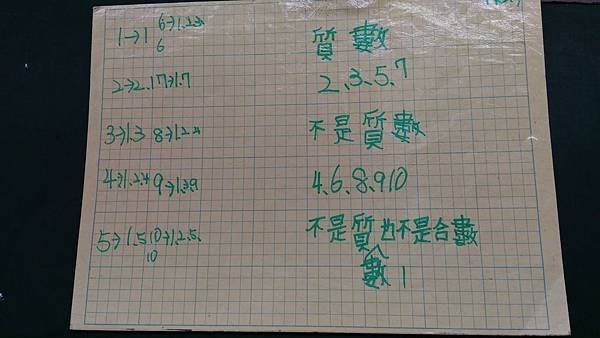 1→1
6→1.2.3.
6
2→2.1
7→1.7
3→1.3
8→1.2.4
4→1.2.4
9→1.3.9
5→1.5
10→1.2.5.
10
質數
2.3.5.7
不是質數
4.6.8.9 10
不是質也不是合數
數 1